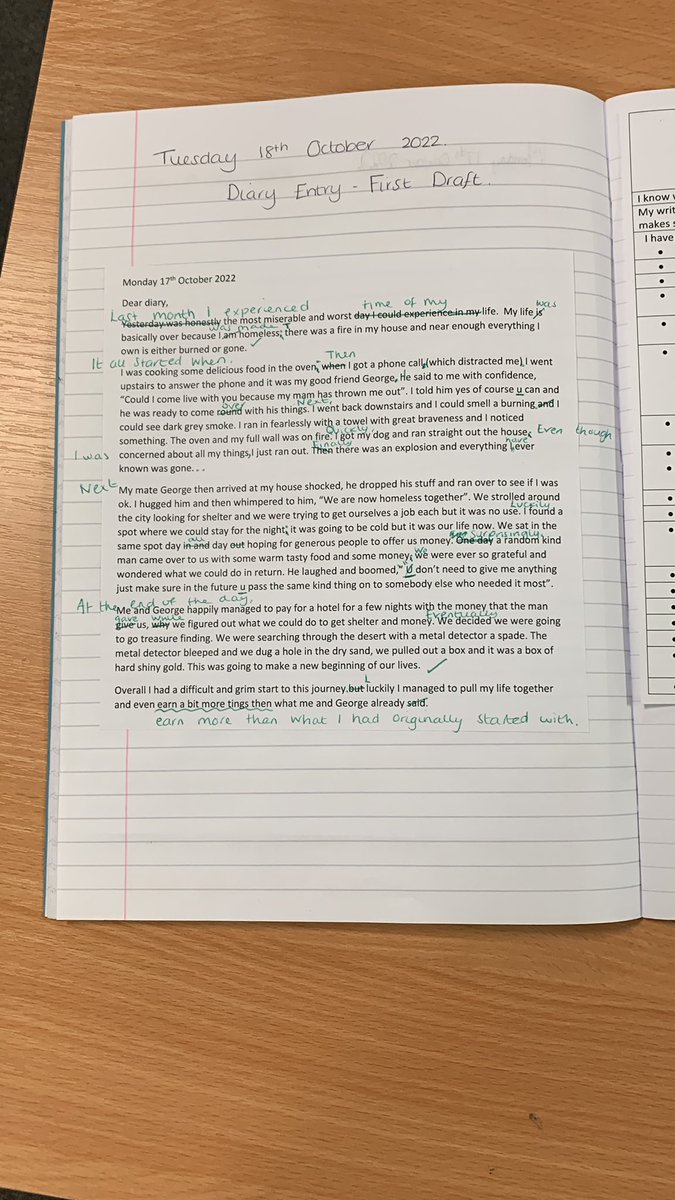 Tuesday 18th October 2022.
Diary Entry - First Draft.
Monday 17th October 2022
Dear diary,
Last month I experienced time of my was
Yesterday was honestly the most miserable and worst day I could experience in my life. My life is
was made T
basically over because I am homeless; there was a fire in my house and near enough everything I
own is either burned or gone. ✓
It all started when. Then
I was cooking some delicious food in the oven, when I got a phone call, (which distracted me) I went
upstairs to answer the phone and it was my good friend George, He said to me with confidence,
“Could I come live with you because my mam has thrown me out”. I told him yes of course u can and
over Next,
he was ready to come round with his things. I went back downstairs and I could smell a burning and I
could see dark grey smoke. I ran in fearlessly with a towel with great braveness and I noticed
Quickly,
something. The oven and my full wall was on fire. I got my dog and ran straight out the house. Even though
I was Finally have
concerned about all my things, I just ran out. Then there was an explosion and everything I ever
known was gone...
Next
My mate George then arrived at my house shocked, he dropped his stuff and ran over to see if I was
ok. I hugged him and then whimpered to him, “We are now homeless together”. We strolled around
Luckily
the city looking for shelter and we were trying to get ourselves a job each but it was no use. I found a
spot where we could stay for the night; it was going to be cold but it was our life now. We sat in the
all Surprisingly,
same spot day in and day out hoping for generous people to offer us money. One day a random kind
We
man came over to us with some warm tasty food and some money, we were ever so grateful and
wondered what we could do in return. He laughed and boomed,“U don’t need to give me anything
just make sure in the future u pass the same kind thing on to somebody else who needed it most”.
At the end of the day,
Me and George happily managed to pay for a hotel for a few nights with the money that the man
gave while Eventually
give us, why we figured out what we could do to get shelter and money. We decided we were going
to go treasure finding. We were searching through the desert with a metal detector a spade. The
metal detector bleeped and we dug a hole in the dry sand, we pulled out a box and it was a box of
hard shiny gold. This was going to make a new beginning of our lives. ✓
L
Overall I had a difficult and grim start to this journey. but luckily I managed to pull my life together
and even earn a bit more tings then what me and George already said.
earn more than what I had originally started with.
I know
My writ
makes
I have